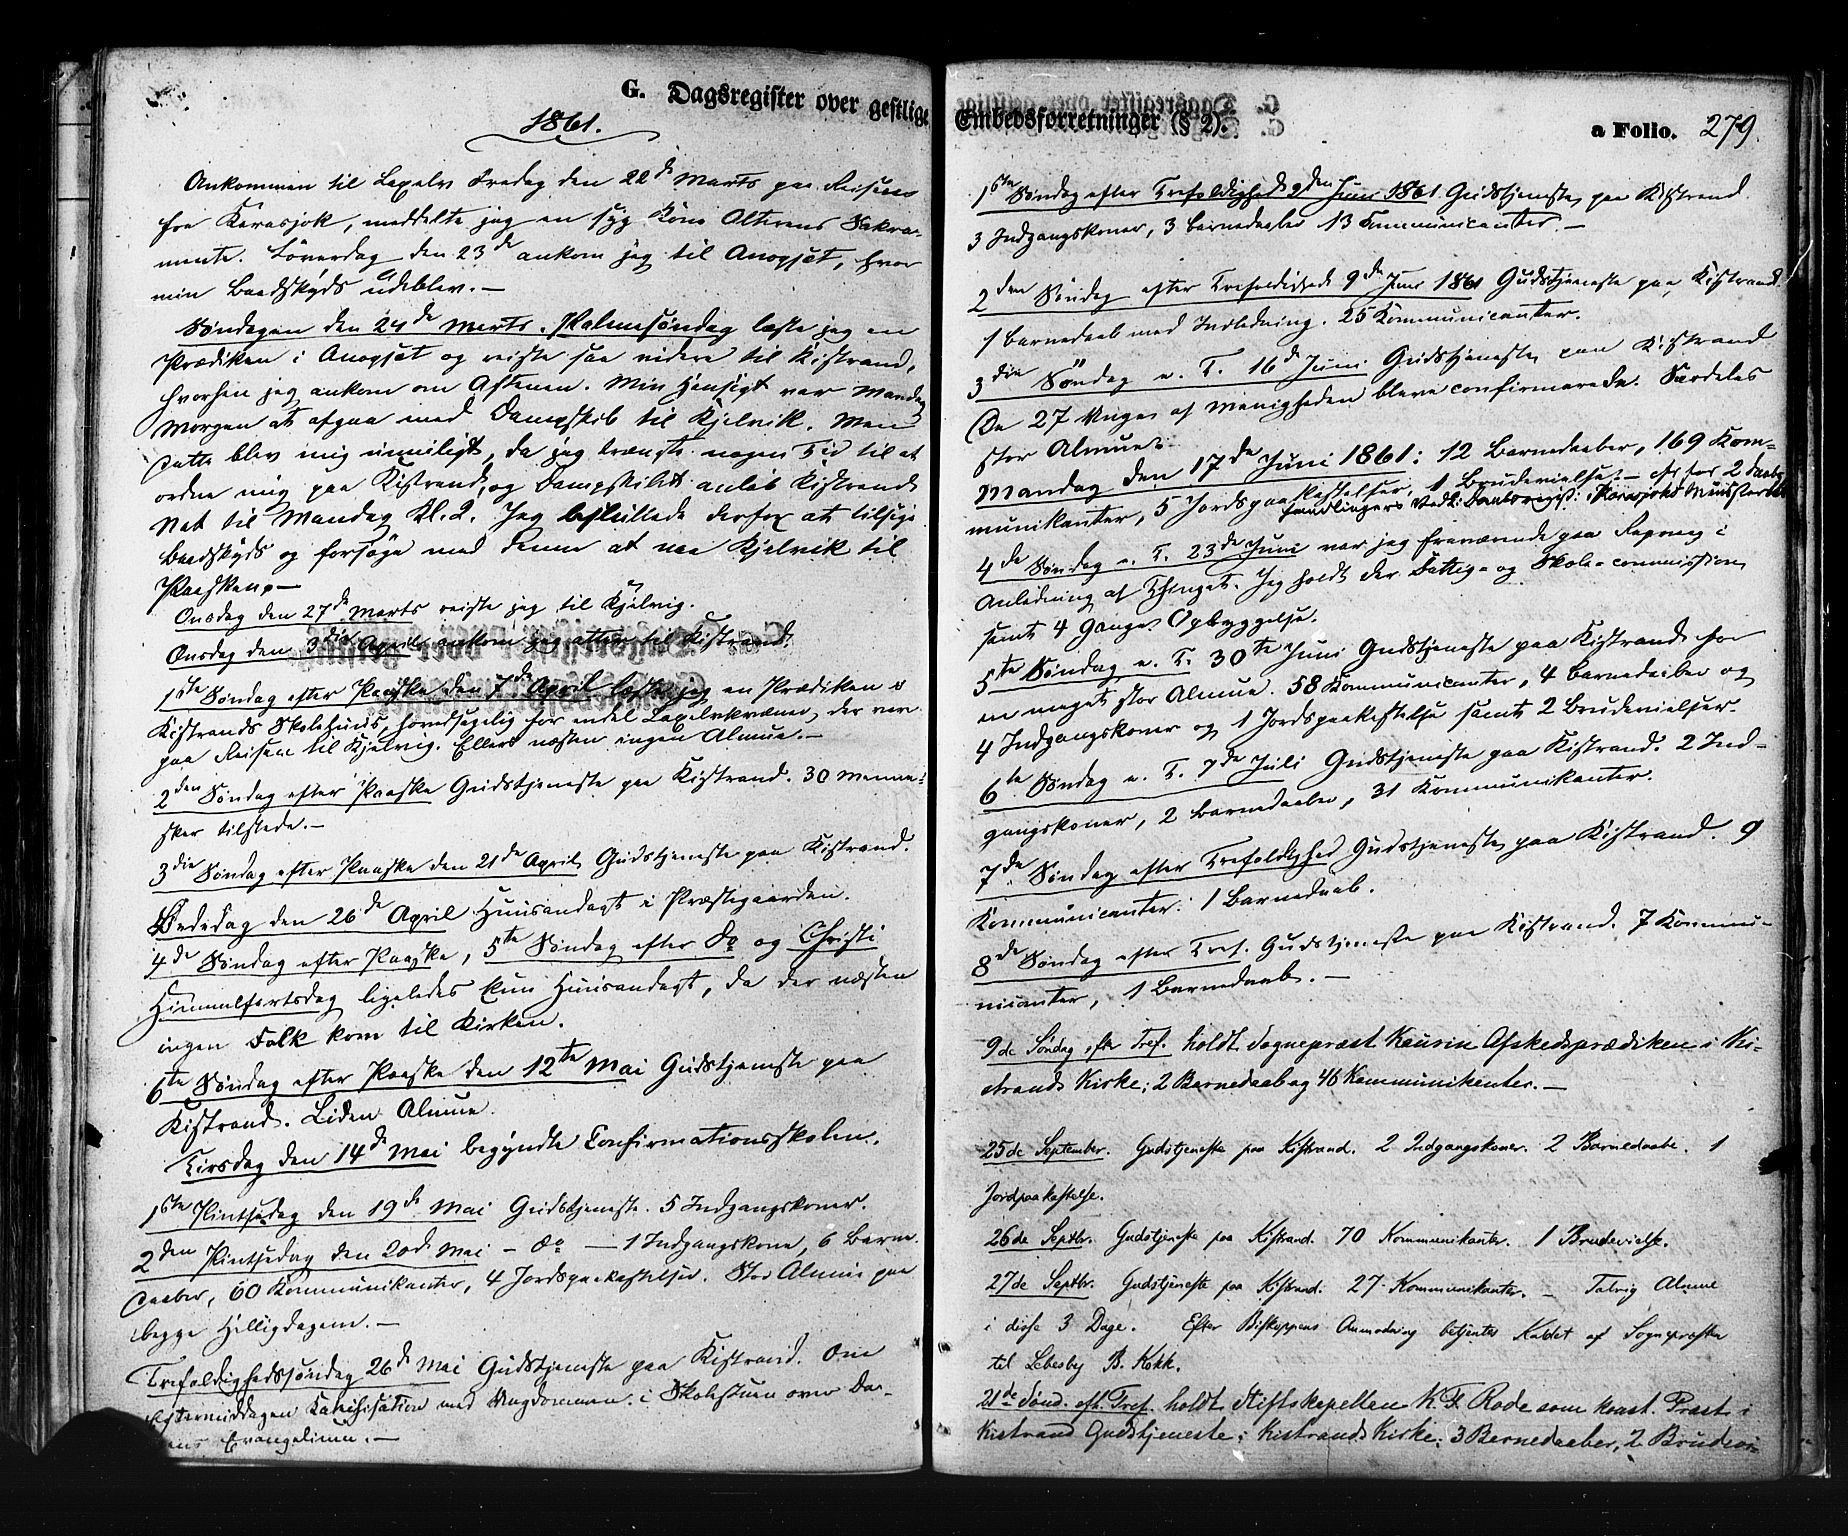 G. Dagsregister over gestlige Embedsforretninger (§ 2).
a Folio. 279.
1861.
Ankommen til Laxelv Fredag den 22de Marts paa Reisen
fra Karasjok, meddelte jeg en syg Kone Alterens Sakra-
mente. Løverdag den 23de ankom jeg til Anopset, hvor
min Baadskyds udeblev.—
Søndagen den 24de Marts. Palmesøndag læste jeg en
Prædiken i Anopset og reiste saa videre til Kistrand,
hvorhen jeg ankom om Aftenen. Min Hensigt var Mandag
Morgen at afgaa med Dampskib til Kjelvik. Men
Dette blev mig umuligt, da jeg trængte nogen Tid til at
ordne mig paa Kistrand, og Dampskibet anløb Kistrand
Nat til Mandag Kl. 2. Jeg besluttede derfor at tilsige
Baadskyds og forsøge med denne at naa Kjelvik til
Paasken.—
Onsdag den 27de Marts reiste jeg til Kjelvig.
Onsdag den 3die April ankom jeg atter til Kistrand.
1ste Søndag efter Paaske den 7de April læste jeg en Prædiken i
Kistrands Skolehuus, hovedsagelig for endel Laxelvkvæner, der var
paa Reisen til Kjelvig. Ellers næsten ingen Almue.—
2den Søndag efter Paaske Gudstjeneste paa Kistrand. 30 Menne-
sker tilstede.—
3die Søndag efter Paaske den 21de April Gudstjeneste paa Kistrand.
Bededag den 26de April Huusandagt i Præstegaarden.
4de Søndag efter Paaske, 5te Søndag efter do og Christi
Himmelfartsdag ligeledes kun Huusandagt, da der næsten
ingen Folk kom til Kirken.
6te Søndag efter Paaske den 12te Mai Gudstjeneste paa
Kistrand. Liden Almue.
Tirsdag den 14de Mai begyndte Confirmationsskolen.
1ste Pintsedag den 19de Mai Gudstjeneste. 5 Indgangskoner.
2den Pintsedag den 20de Mai — do — 1 Indgangskone, 6 Barne
Daaber, 60 Kommunikanter, 4 Jordspaakastelser. Stor Almue paa
begge Helligdagene.—
Trefoldighedssøndag 26de Mai Gudstjeneste paa Kistrand. Om
Eftermiddagen Katechisation med Ungdommen i Skolestuen over Da-
gens Evangelium.—
1ste Søndag efter Trefoldighed 2den Juni 1861 Gudstjeneste paa Kistrand.
3 Indgangskoner, 3 Barnedaaber 13 Communicanter.—
2den Søndag efter Trefoldighed 9de Juni 1861 Gudstjeneste paa Kistrand.
1 Barnedaab med Indledning. 25 Kommunicanter.
3die Søndag e. T. 16de Juni Gudstjeneste paa Kistrand
Da 27 Unge af Menigheden bleve confirmerede. Særdeles
stor Almue.
Mandag den 17de Juni 1861: 12 Barnedaaber, 169 Kom-
munikanter, 5 Jordspaakastelser, 1 Brudevielse.— for 2 Daabs
handlingers Vedk: i Karasjoks Ministerialb
4de Søndag e. T. 23de Juni var jeg fraværende paa Repvaag i
Anledning af Thinget. Jeg holdt der Fattig- og Skole-commission
samt 4 Gange Opbyggelse.
5te Søndag e. T. 30te Juni Gudstjeneste paa Kistrand for
en meget stor Almue. 58 Kommunicanter, 4 Barnedaaber og
4 Indgangskoner og 1 Jordspaakastelse samt 2 Brudevielser.
6te Søndag e. T. 7de Juli Gudstjeneste paa Kistrand. 2 Ind-
gangskoner, 2 Barnedaaber, 31 Kommunikanter.
7de Søndag efter Trefoldighed Gudstjeneste paa Kistrand. 9
Kommunicanter. 1 Barnedaab.
8de Søndag efter Tref. Gudstjeneste paa Kistrand. 7 Kommu-
nicanter, 1 Barnedaab.—
9de Søndag efter Tref. holdt Sognepræst Kaurin Afskedsprædiken i Ki-
strands Kirke; 2 Barnedaab og 46 Kommunikanter.—
25de September. Gudstjeneste paa Kistrand. 2 Indgangskoner. 2 Barnedaabe. 1
Jordpaakastelse.
26de Septbr. Gudstjeneste paa Kistrand. 70 Kommunikanter. 1 Brudevielse.
27de Septbr. Gudstjeneste paa Kistrand. 27 Kommunikanter. — Talrig Almue
i disse 3 Dage. Efter Biskoppens Anmodning betjentes Kaldet af Sognepræsten
til Lebesby B. Kokk.
21de Sønd. eft. Tref. holdt Stiftskapellan K. F. Rode som konst. Præst i
Kistrand Gudstjeneste i Kistrands Kirke; 3 Barnedaaber, 2 Brudevi-